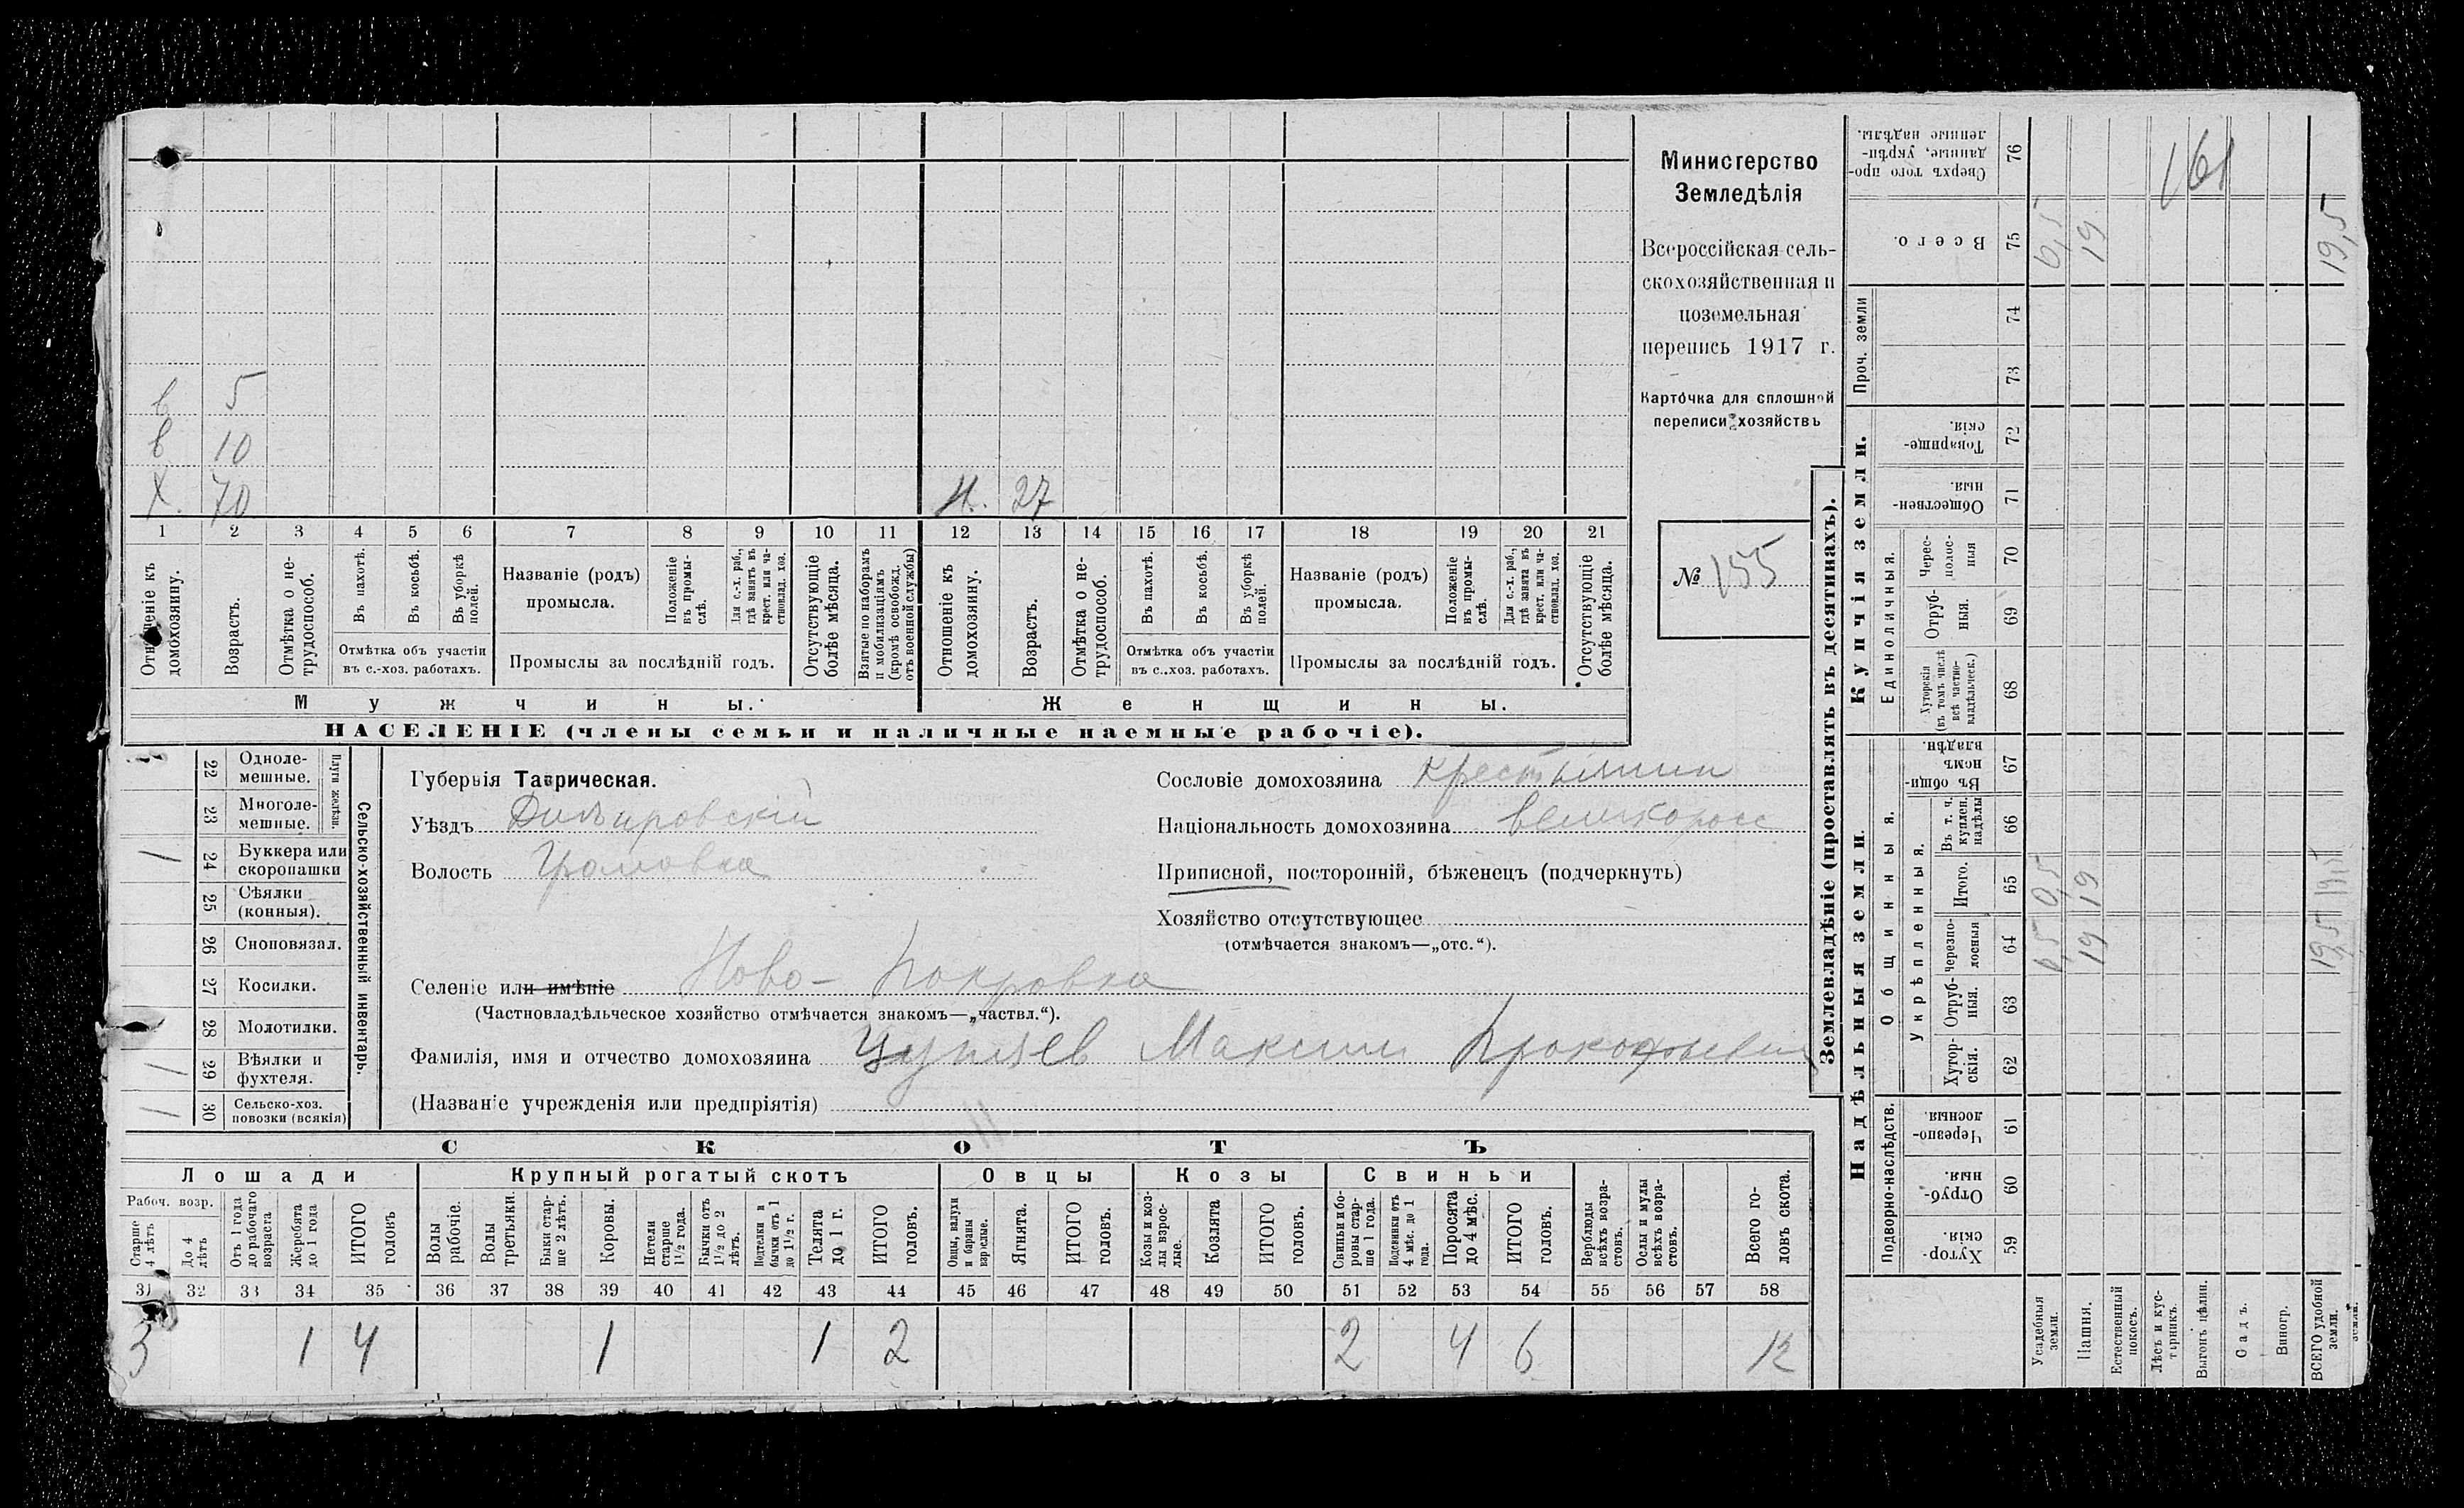 в 5
в 10
Х. 70 Н. 27
1 2 3 4 5 6 7 8 9 10 11 12 13 14 15 16 17 18 19 20 21
Отношеніе къ домохозяину.
Возрастъ.
Отмѣтка о не-трудоспособ.
Въ пахотѣ.
Въ косьбѣ.
Въ уборкѣ полей.
Отмѣтка объ участіи
въ с.-хоз. работахъ.
Названіе (родъ)
промысла.
Положеніе въ промы-слѣ.
Для с.-х. раб., гдѣ занятъ въ крест. или ча-стновлад. хоз.
Промыслы за послѣдній годъ.
Отсутствующіе болѣе мѣсяца.
Взятые по наборамъ и мобилизаціямъ (кромѣ освобожд. отъ военной службы)
Отношеніе къ домохозяину.
Возрастъ.
Отмѣтка о не-трудоспособ.
Въ пахотѣ.
Въ косьбѣ.
Въ уборкѣ полей.
Отмѣтка объ участіи
въ с.-хоз. работахъ.
Названіе (родъ)
промысла.
Положеніе въ промы-слѣ.
Для с.-х. раб., гдѣ занята въ крест. или ча-стновлад. хоз.
Промыслы за послѣдній годъ.
Отсутствующіе болѣе мѣсяца.
Мужчины. Женщины.
НАСЕЛЕНІЕ (члены семьи и наличные наемные рабочіе).
Министерство
Земледѣлія
Всероссійская сель-
скохозяйственная и
поземельная
перепись 1917 г.
Карточка для сплошной
переписи хозяйствъ
№ 155
22 Одноле-мешные.
23 Многоле-мешные.
Плуги желѣзн.
1 24 Буккера или скоропашки
25 Сѣялки (конныя).
26 Сноповязал.
27 Косилки.
28 Молотилки.
1 29 Вѣялки и фухтеля.
1 30 Сельско-хоз. повозки (всякія)
Сельско-хозяйственный инвентарь.
Губернія Таврическая.
Уѣздъ Днѣпровскій
Волость Громовка
Сословіе домохозяина Крестьянин
Національность домохозяина великоросс
Приписной, посторонній, бѣженецъ (подчеркнуть)
Хозяйство отсутствующее
(отмѣчается знакомъ—„отс.“).
Селеніе или имѣніе Ново-Покровка
(Частновладѣльческое хозяйство отмѣчается знакомъ—„частвл.“).
Фамилія, имя и отчество домохозяина Максим Прокофьевич
(Названіе учрежденія или предпріятія)
СКОТЪ
Лошади Крупный рогатый скотъ Овцы Козы Свиньи
Рабоч. возр.
Старше 4 лѣтъ
До 4 лѣтъ
Отъ 1 года до рабочаго возраста
Жеребята до 1 года
ИТОГО головъ
Волы рабочіе.
Волы третьяки.
Быки стар-ше 2 лѣтъ.
Коровы.
Нетели старше 1 1/2 года.
Бычки отъ 1 1/2 до 2 лѣтъ.
Подтелки и бычки отъ 1 до 1 1/2 г.
Телята до 1 г.
ИТОГО головъ.
Овцы, валухи и бараны взрослые.
Ягнята.
ИТОГО головъ.
Козы и коз-лы взрос-лые.
Козлята
ИТОГО головъ.
Свиньи и бо-ровы стар-ше 1 года.
Подсвинки отъ 4 мѣс. до 1 года.
Поросята до 4 мѣс.
ИТОГО головъ.
Верблюды всѣхъ возра-стовъ.
Ослы и мулы всѣхъ возра-стовъ.
Всего го-ловъ скота.
31 32 33 34 35 36 37 38 39 40 41 42 43 44 45 46 47 48 49 50 51 52 53 54 55 56 57 58
3 1 4 1 1 2 2 4 6 12
Землевладѣніе (проставлять въ десятинахъ).
161
Сверхъ того про-данные, укрѣп-ленные надѣлы. 76
Всего. 75 0,5 19 19,5
Проч. земли 74 73
Купчія земли.
Товарище-скія. 72
Обществен-ныя. 71
Единоличныя.
Черес-полос-ныя 70
Отруб-ныя. 69
Хуторскія (въ томъ числѣ всѣ частно-владѣльческ.) 68
Надѣльныя земли.
Общинныя.
Въ общи-номъ владѣн. 67
Укрѣпленныя.
Въ т. ч. куплен. надѣлы 66
Итого. 65 0,5 19 19,5
черезпо-лосныя 64 0,5 19 19,5
Отруб-ныя. 63
Хутор-скія. 62
Подворно-наслѣдств.
Черезпо-лосныя. 61
Отруб-ныя. 60
Хутор-скія. 59
Усадебныя земли.
Пашня.
Естественный покосъ.
Лѣсъ и кус-тарникъ.
Выгонъ цѣлин.
Садъ.
Виногр.
ВСЕГО удобной земли.